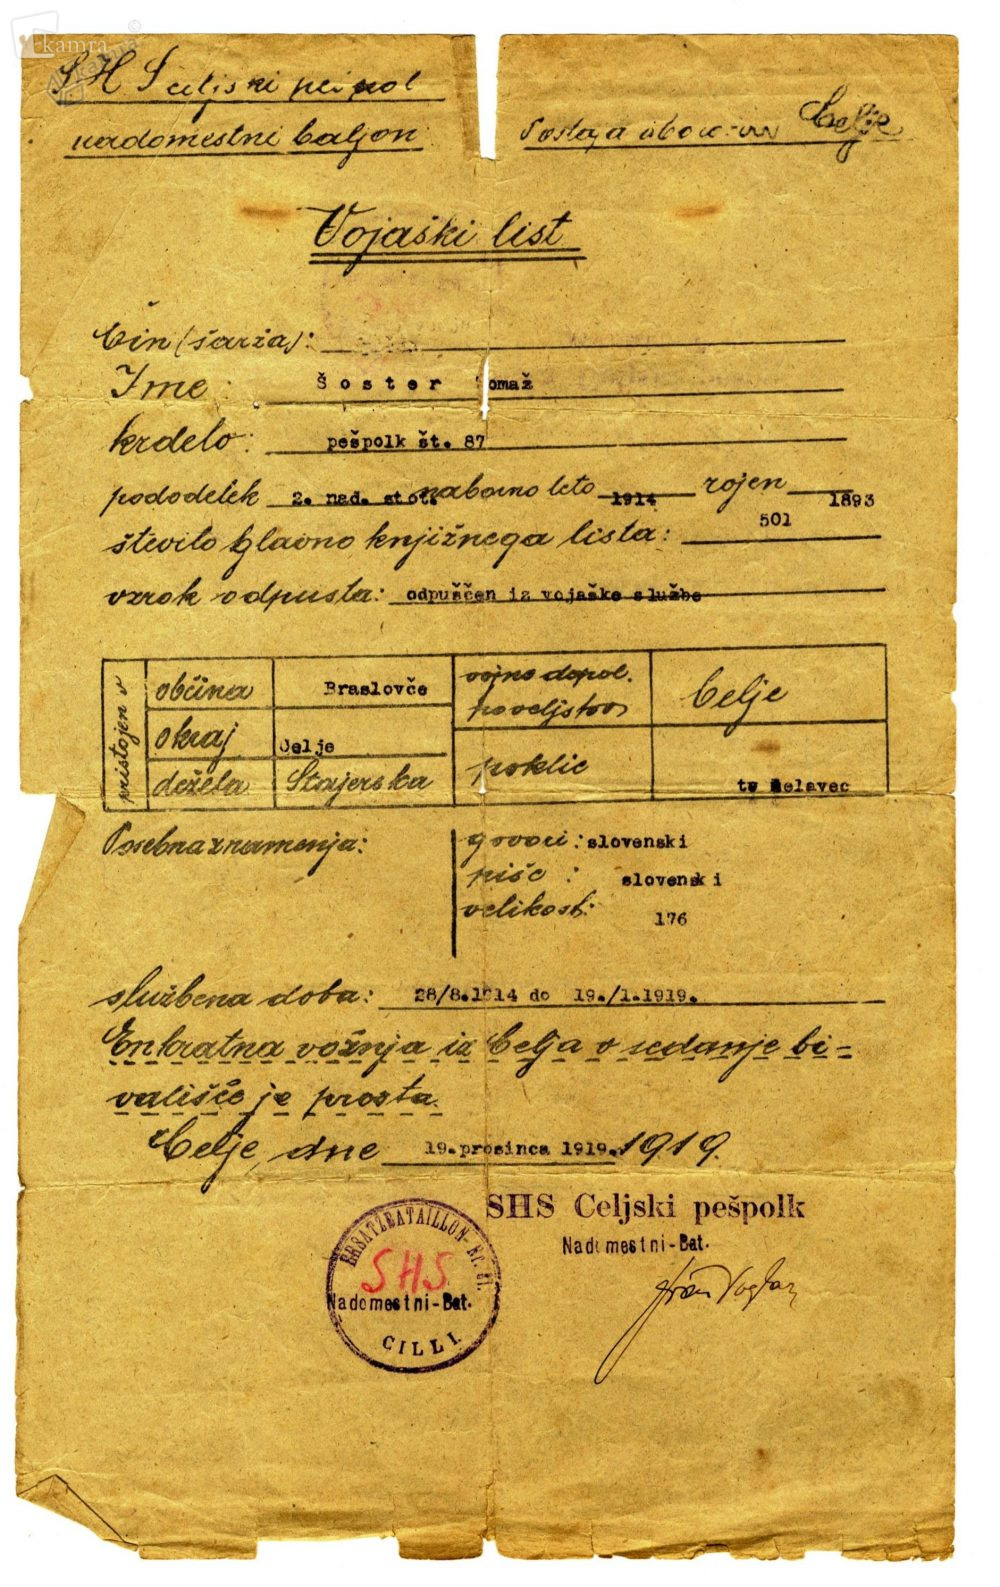 kamra
SHS celjski
nadomestni baljon
Celje
Vojaški list
Čin (šarža):
Ime: Šoster omaž
krdelo: pešpolk št. 87
pododelek 2. nad. stot. naborno leto 1914 rojen 1893
število glavno knjižnega lista: 501
vzrok odpusta: odpuščen iz vojaške službe
pristojen v
občina Braslovče
okraj Celje
dežela Štajerska
vojno dopol.
poveljstvo Celje
poklic
Posebna znamenja:
govori: slovenski
piše: slovenski
velikost: 176
službena doba: 28/8.1914 do 19./1.1919.
Enkratna vožnja iz Celja v sedanje bi-
vališče je prosta.
Celje, dne 19.prosinca 1919. 1919.
SHS Celjski pešpolk
Nadomestni-Bat.
ERSATZBATAILLON
SHS
Nadomestni-Bat.
CILLI.